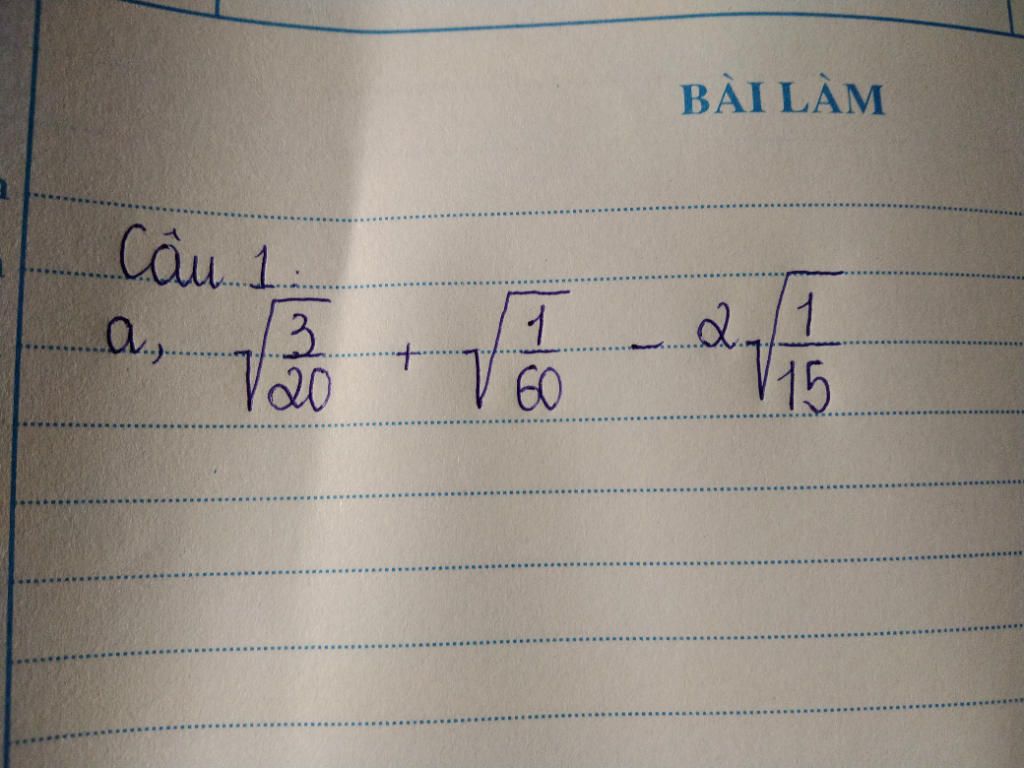 BÀI LÀM
Câu 1:
a, √(3/20) + √(1/60) - 2√(1/15)